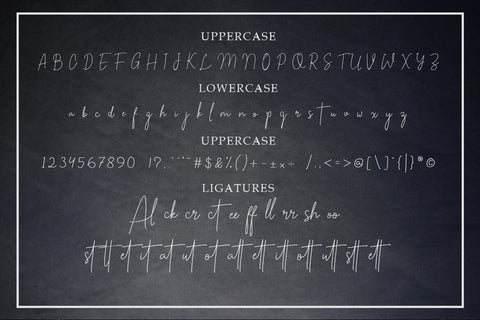 UPPERCASE
A B C D E F G H I J K L M N O P Q R S T U V W X Y Z
LOWERCASE
a b c d e f g h i j k l m n o p q r s t u v w x y z
UPPERCASE
1 2 3 4 5 6 7 8 9 0 !? # $ & % ( ) + - ± × ÷ / . , < = > @ [ \ ] { | } ©
LIGATURES
Al ck cr ct ee ff ll rr sh oo
st tt et it at ut ot att ett itt ott utt stt ett